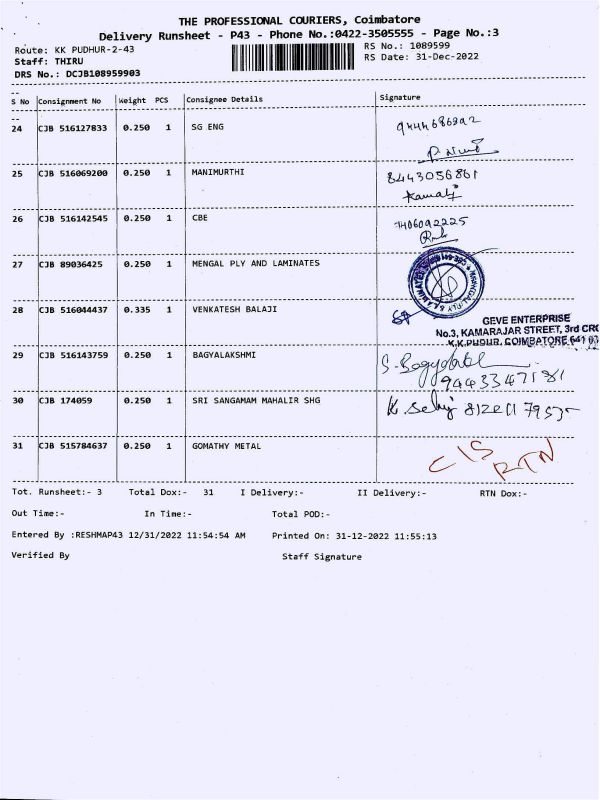 THE PROFESSIONAL COURIERS, Coimbatore
Delivery Runsheet - P43 - Phone No.:0422-3505555 - Page No.:3
Route: KK PUDHUR-2-43 RS No.: 1089599
Staff: THIRU RS Date: 31-Dec-2022
DRS No.: DCJB108959903
S No Consignment No Weight PCS Consignee Details Signature
24 CJB 516127833 0.250 1 SG ENG 9444686892
25 CJB 516069200 0.250 1 MANIMURTHI 8443056861
Kamalj
26 CJB 516142545 0.250 1 CBE 7406092225
27 CJB 89036425 0.250 1 MENGAL PLY AND LAMINATES
28 CJB 516044437 0.335 1 VENKATESH BALAJI
GEVE ENTERPRISE
No.3, KAMARAJAR STREET, 3rd CRO
K.K.PUDUR, COIMBATORE 641 0
29 CJB 516143759 0.250 1 BAGYALAKSHMI
9443347181
30 CJB 174059 0.250 1 SRI SANGAMAM MAHALIR SHG K. Selvj
31 CJB 515784637 0.250 1 GOMATHY METAL C/S
RTN
Tot. Runsheet:- 3 Total Dox:- 31 I Delivery:- II Delivery:- RTN Dox:-
Out Time:- In Time:- Total POD:-
Entered By :RESHMAP43 12/31/2022 11:54:54 AM Printed On: 31-12-2022 11:55:13
Verified By Staff Signature